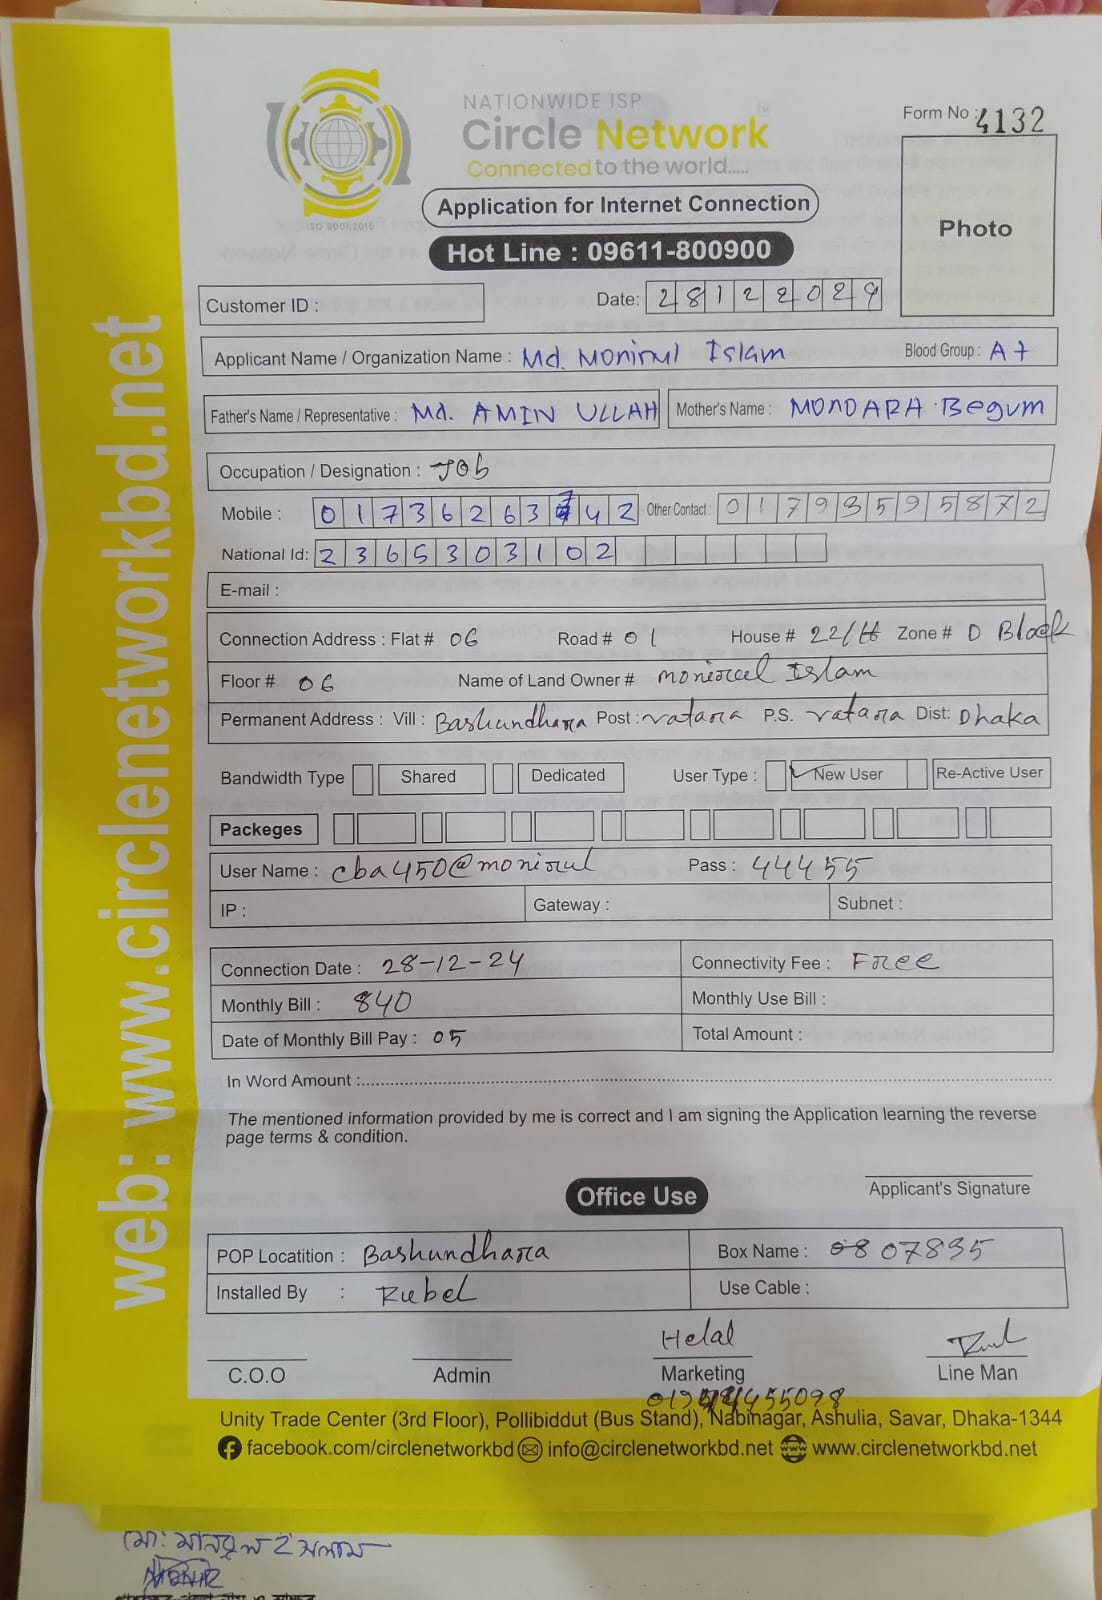 NATIONWIDE ISP
Circle Network
Connected to the world.....
ISO 9001:2015
Form No : 4132
Photo
Application for Internet Connection
Hot Line : 09611-800900
Customer ID :
Date: 28122024
Applicant Name / Organization Name : Md. Monirul Islam Blood Group : A+
Father's Name / Representative : Md. AMIN ULLAH Mother's Name : MONOARA Begum
Occupation / Designation : JOB
Mobile : 01736263742 Other Contact : 01793595872
National Id: 2365303102
E-mail :
Connection Address : Flat # 06 Road # 01 House # 22/H Zone # D Block
Floor # 06 Name of Land Owner # monirul Islam
Permanent Address : Vill : Bashundhara Post : vatara P.S. vatara Dist: Dhaka
Bandwidth Type Shared Dedicated User Type : New User Re-Active User
Packeges
User Name : cba450@monirul Pass : 44455
IP : Gateway : Subnet :
Connection Date : 28-12-24 Connectivity Fee : Free
Monthly Bill : 840 Monthly Use Bill :
Date of Monthly Bill Pay : 05 Total Amount :
In Word Amount :
The mentioned information provided by me is correct and I am signing the Application learning the reverse
page terms & condition.
Office Use
Applicant's Signature
POP Locatition : Bashundhara Box Name : 0807835
Installed By : Rubel Use Cable :
Helal
C.O.O Admin Marketing Line Man
Unity Trade Center (3rd Floor), Pollibiddut (Bus Stand), Nabinagar, Ashulia, Savar, Dhaka-1344
facebook.com/circlenetworkbd info@circlenetworkbd.net www.circlenetworkbd.net
web: www.circlenetworkbd.net
মো: মনিরুল ইসলাম